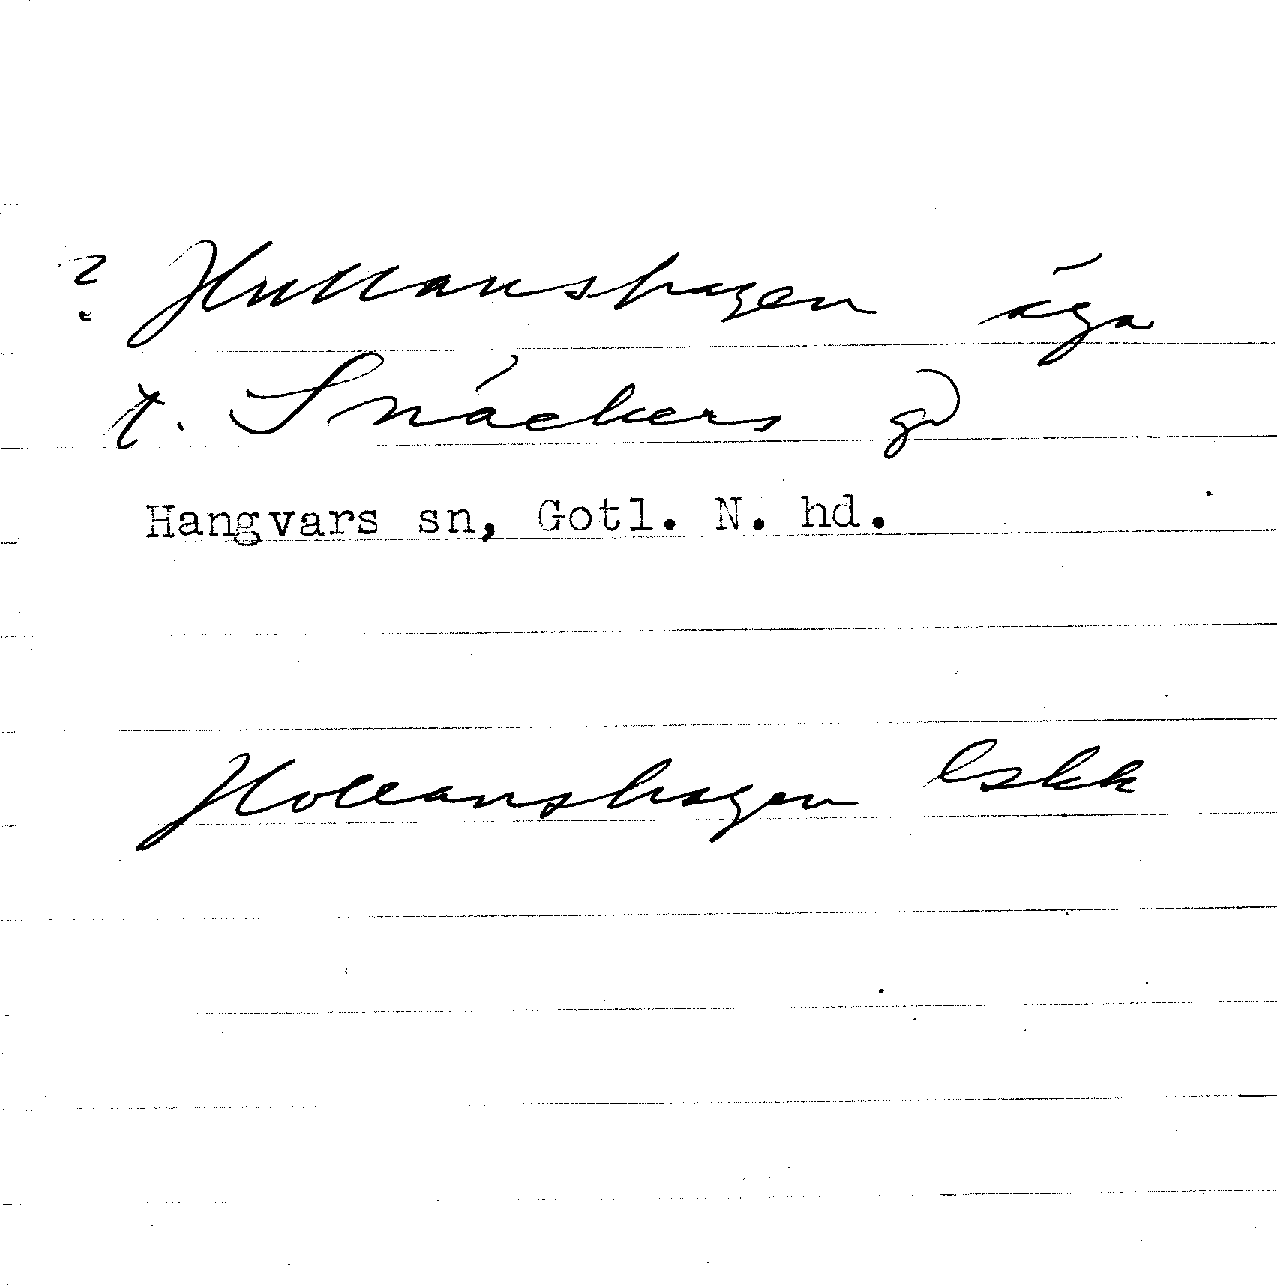 ? Hullanshagen äga
t. Snäckers gd
Hangvars sn, Gotl. N. hd.
Hollanshagen Eskk